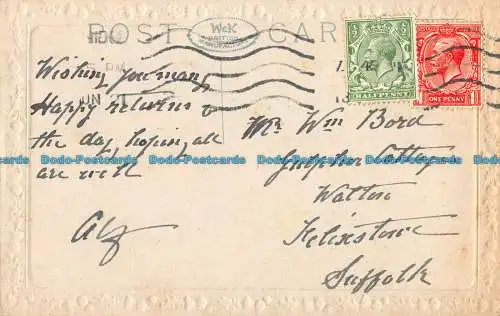 POST CARD
W&K
BRITISH
MANUFACTURE
5 PM
JUN 21
HALFPENNY
ONE PENNY
Wishing you many
Happy returns of
the day, hoping all
are well
Mr Wm Bord
Sulpher Cottage
Walton
Felixstowe
Suffolk
Dodo-Postcards Dodo-Postcards Dodo-Postcards Dodo-Postcards Dodo-Postcards